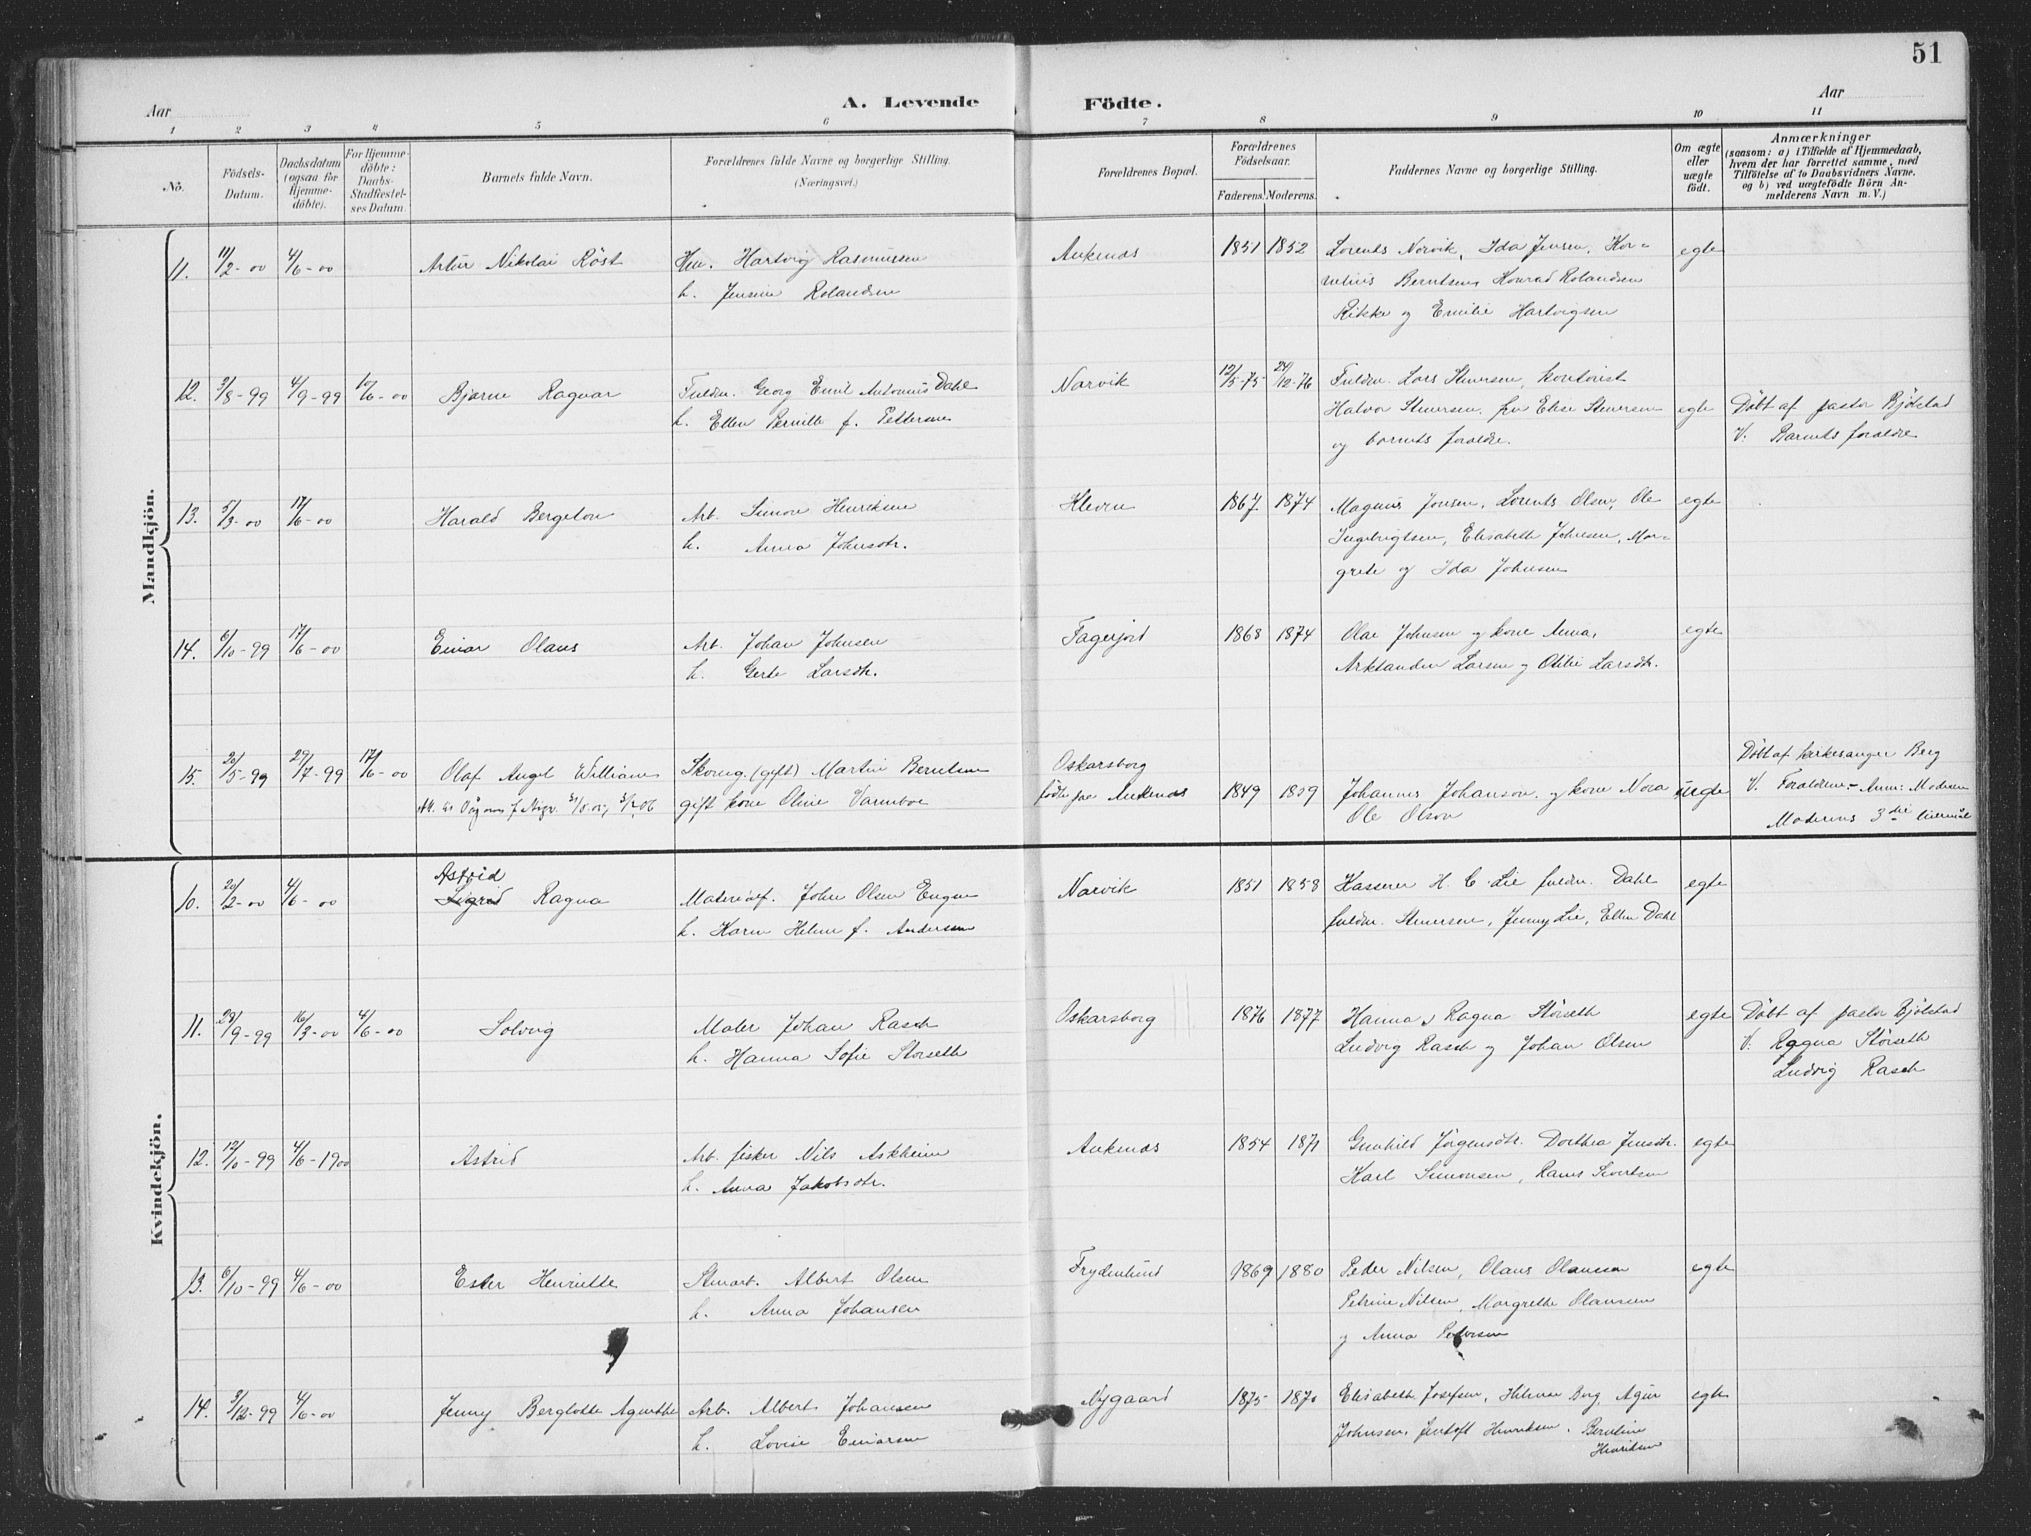 51
Aar
A. Levende Födte.
Aar
1 2 3 4 5 6 7 8 9 10 11
Nö.
Födsels-Datum.
Daabsdatum (ogsaa for Hjemme-döbte).
For Hjemme-döbte: Daabs-Stadfestel-ses Datum
Barnets fulde Navn.
Forældrenes fulde Navne og borgerlige Stilling.
(Næringsvei.)
Forældrenes Bopæl.
Forældrenes Födselsaar.
Faderens. Moderens.
Faddernes Navne og borgerlige Stilling.
Om ægte eller uægte födt.
Anmærkninger
(saasom: a) i Tilfælde af Hjemmedaab, hvem der har forrettet samme, med Tilföielse af to Daabsvidners Navne, og b) ved uægtefödte Börn An-melderens Navn m. V.)
Mandkjön.
11. 11/2-00 4/6-00 Artur Nikolai Röst Hartvig Rasmussen Ankenes 1851 1852 Lorents Norvik, Ida Jensen, Kor- egte
h. Jensine Rolandsen nelius Berntsen, Konrad Rolandsen
Rikka og Emilie Hartvigsen
12. 3/8-99 4/9-99 10/6-00 Bjarne Ragnar Fuldm. Georg Emil Antonius Dahl Narvik 12/5-75 24/12-76 Fuldm. Lars Stenersen, kontorist
h. Ellen Pernille f. Pettersen Halvor Stenersen, fru Elise Stenersen egte Döbt af pastor Bjölstad
og barnets forældre. V. Barnets forældre
13. 5/3-00 17/6-00 Harald Bergeton Arb. Simon Henriksen Kleven 1867 1874 Magnus Jensen, Lorents Olsen, Ole egte
h. Anna Johnsdtr. Ingebrigtsen, Elisabeth Johnsen, Mar-
grete og Ida Johnsen
14. 6/10-99 17/6-00 Einar Olaus Arb. Johan Johnsen Fagerjord 1868 1874 Olae Johnsen og kone Anna, egte
h. Gerte Larsdtr. Arktander Larsen og Otilie Larsdtr.
15. 26/5-99 29/7-99 17/6-00 Olaf Angel William Skomag. (gift) Martin Berntsen Oskarsborg Döbt af kirkesanger Berg
gift kone Oline Varmboe födte paa Ankenes 1849 1859 Johannes Johanson og kone Nora uegte V. Forældrene. Anm: Moderen
Ole Olson Moderens 3die leiermål
Kvindekjön.
10. 20/2-00 4/6-00 Astrid
Sigrid Ragna Materialf. John Olsen Engen Narvik 1851 1858 Kasserer H. C. Lie fuldm. Dahl egte
h. Karen Helene f. Andersen fuldm. Stenersen, Jenny Lie, Ellen Dahl
11. 28/9-99 16/3-00 4/6-00 Solveig Maler Johan Rasch Oskarsborg 1876 1877 Hanna og Ragna Störseth egte Döbt af pastor Bjölstad
h. Hanna Sofie Störseth Ludvig Rasch og Johan Olsen V. Ragna Störseth
Ludvig Rasch
12. 12/10-99 4/6-1900 Astrid Arb. fisker Nils Askheim Ankenes 1854 1871 Gunhild Jörgensdtr. Dorthea Jensdtr. egte
h. Anna Jakobsdtr. Karl Simonsen, Rams Sivertsen
13. 6/10-99 4/6-00 Ester Henriette Stuart. Albert Olsen Frydenlund 1869 1880 Peder Nilsen, Olaus Olaussen egte
h. Anna Johansen Petrine Nilsen, Margrethe Olaussen
og Anna Pedersen
14. 3/12-99 4/6-00 Jenny Berglotte Agnethe Arb. Albert Johansen Nygaard 1875 1870 Elisabeth Josefsen, Helene Borg, Agur egte
h. Lovise Einarsen Johnsen, Jentoft Henriksen, Berntine
Henriksen